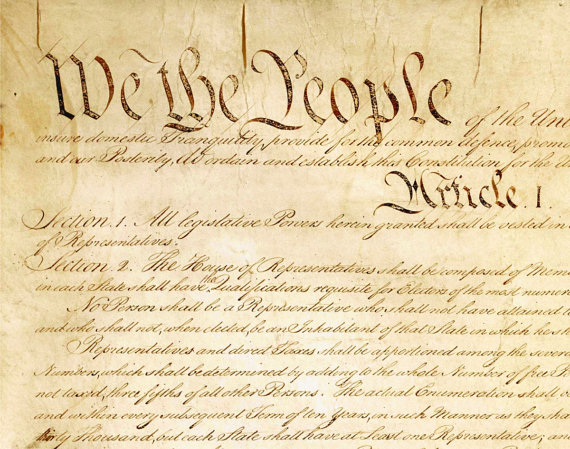 We the People of the Uni
insure domestic Tranquility, provide for the common defence, promo
and our Posterity, do ordain and establish this Constitution for the U
Article. I.
Section. 1. All legislative Powers herein granted shall be vested in
of Representatives.
Section. 2. The House of Representatives shall be composed of Mem
in each State shall have the Qualifications requisite for Electors of the most numer
No Person shall be a Representative who shall not have attained t
and who shall not, when elected, be an Inhabitant of that State in which he s
Representatives and direct Taxes shall be apportioned among the severa
Numbers, which shall be determined by adding to the whole Number of free P
not taxed, three fifths of all other Persons. The actual Enumeration shall
and within every subsequent Term of ten Years, in such Manner as they sha
thirty Thousand, but each State shall have at Least one Representative; and